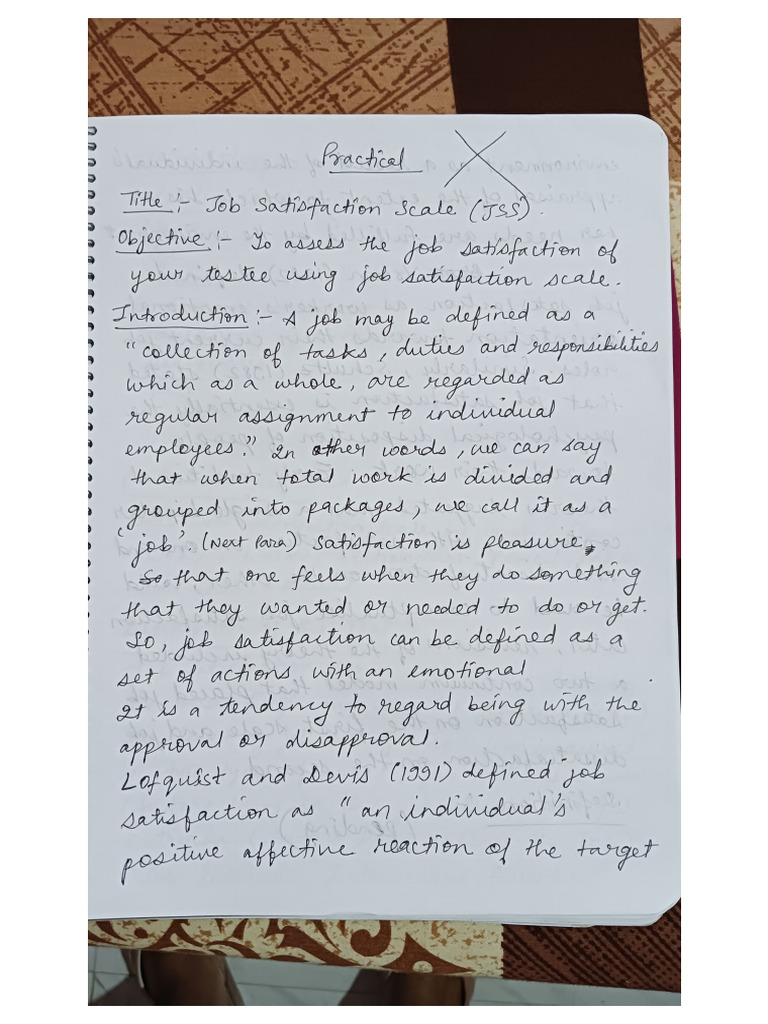 Practical
Title :- Job Satisfaction Scale (JSS).
Objective :- To assess the job satisfaction of
your testee using job satisfaction scale.
Introduction :- A job may be defined as a
"collection of tasks, duties and responsibilities
which as a whole, are regarded as
regular assignment to individual
employees." In other words, we can say
that when total work is divided and
grouped into packages, we call it as a
'job'. (Next Para) Satisfaction is pleasure,
So that one feels when they do something
that they wanted or needed to do or get.
So, job satisfaction can be defined as a
set of actions with an emotional
It is a tendency to regard being with the
approval or disapproval.
Lofquist and Devis (1991) defined job
satisfaction as "an individual's
positive affective reaction of the target